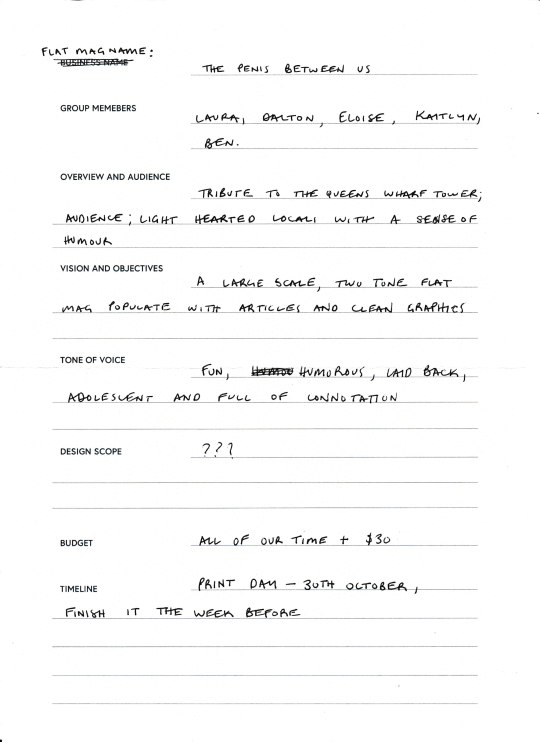 FLAT MAG NAME:
BUSINESS NAME
THE PENIS BETWEEN US
GROUP MEMEBERS
LAURA, DALTON, ELOISE, KAITLYN,
BEN.
OVERVIEW AND AUDIENCE
TRIBUTE TO THE QUEENS WHARF TOWER;
AUDIENCE; LIGHT HEARTED LOCALS WITH A SENSE OF
HUMOUR
VISION AND OBJECTIVES
A LARGE SCALE, TWO TONE FLAT
MAG POPULATE WITH ARTICLES AND CLEAN GRAPHICS
TONE OF VOICE
FUN, HUMOROUS, LAID BACK,
ADOLESCENT AND FULL OF CONNOTATION
DESIGN SCOPE
???
BUDGET
ALL OF OUR TIME + $30
TIMELINE
PRINT DAY – 30TH OCTOBER,
FINISH IT THE WEEK BEFORE